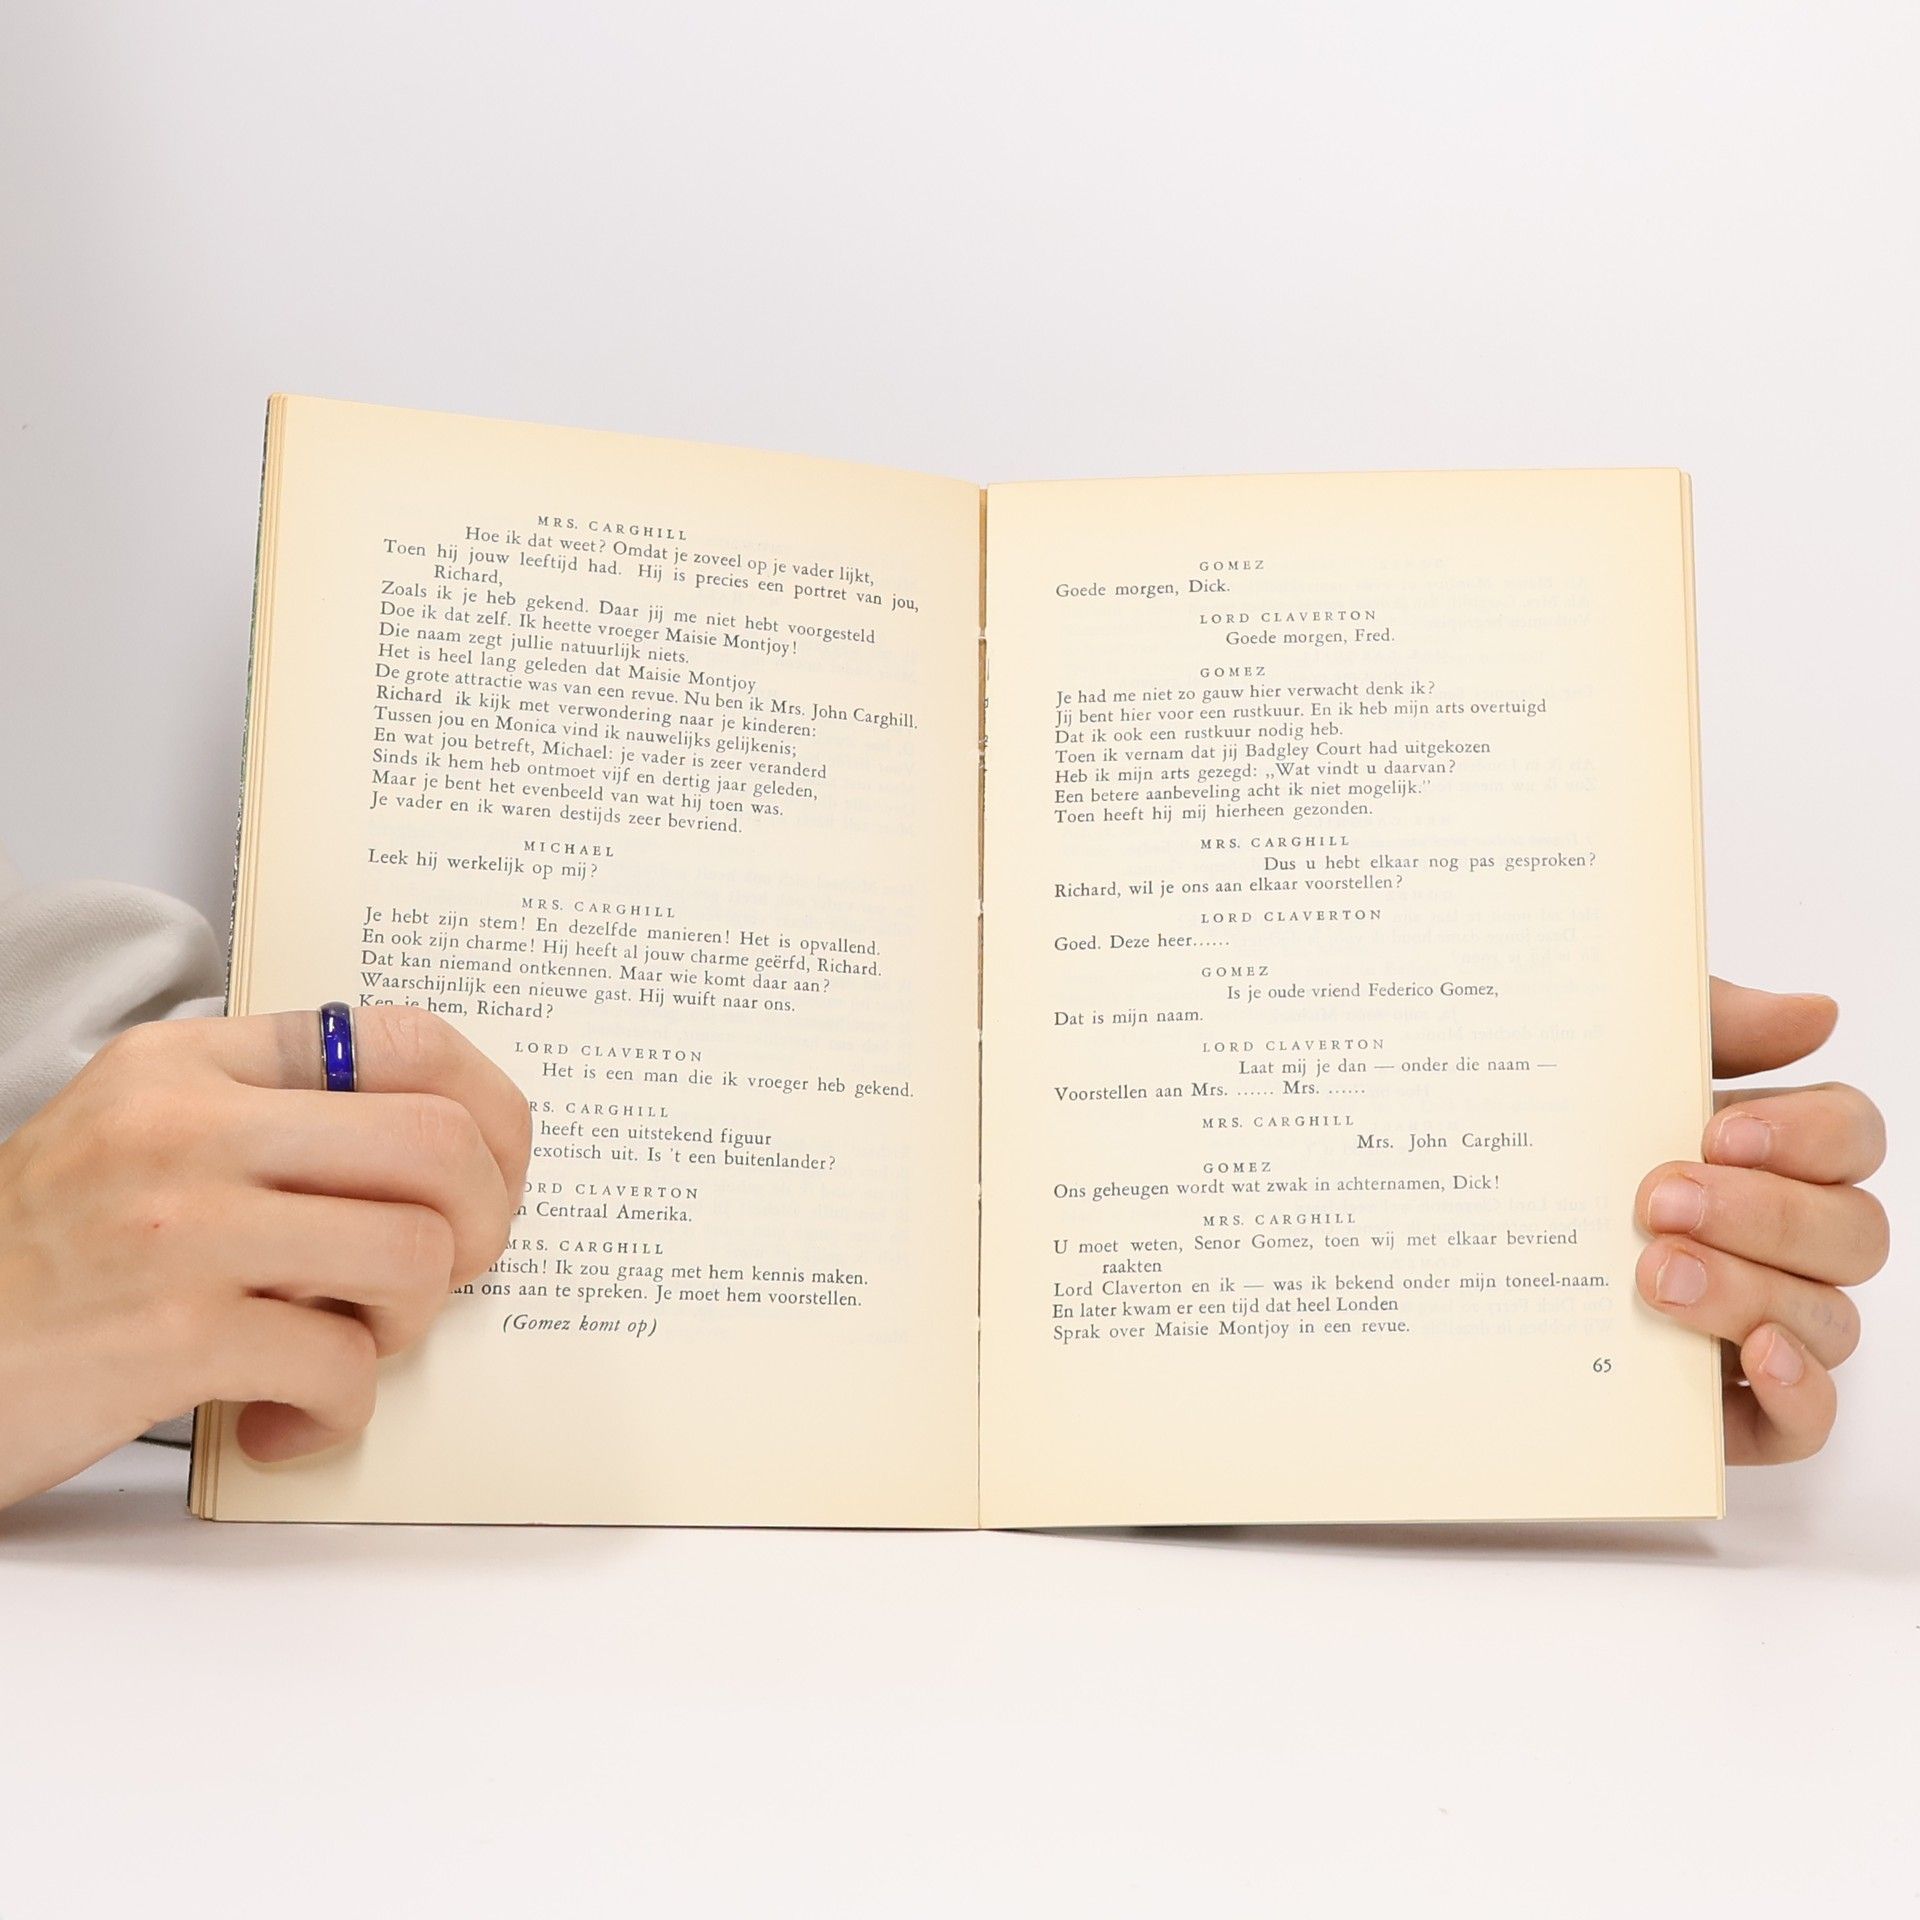 MRS. CARGHILL
Hoe ik dat weet? Omdat je zoveel op je vader lijkt,
Toen hij jouw leeftijd had. Hij is precies een portret van jou,
Richard,
Zoals ik je heb gekend. Daar jij me niet hebt voorgesteld
Doe ik dat zelf. Ik heette vroeger Maisie Montjoy!
Die naam zegt jullie natuurlijk niets.
Het is heel lang geleden dat Maisie Montjoy
De grote attractie was van een revue. Nu ben ik Mrs. John Carghill.
Richard ik kijk met verwondering naar je kinderen:
Tussen jou en Monica vind ik nauwelijks gelijkenis;
En wat jou betreft, Michael: je vader is zeer veranderd
Sinds ik hem heb ontmoet vijf en dertig jaar geleden,
Maar je bent het evenbeeld van wat hij toen was.
Je vader en ik waren destijds zeer bevriend.
MICHAEL
Leek hij werkelijk op mij?
MRS. CARGHILL
Je hebt zijn stem! En dezelfde manieren! Het is opvallend.
En ook zijn charme! Hij heeft al jouw charme geërfd, Richard.
Dat kan niemand ontkennen. Maar wie komt daar aan?
Waarschijnlijk een nieuwe gast. Hij wuift naar ons.
Ken je hem, Richard?
LORD CLAVERTON
Het is een man die ik vroeger heb gekend.
CARGHILL
heeft een uitstekend figuur
exotisch uit. Is 't een buitenlander?
CLAVERTON
Centraal Amerika.
MRS. CARGHILL
Ik zou graag met hem kennis maken.
ons aan te spreken. Je moet hem voorstellen.
(Gomez komt op)
GOMEZ
Goede morgen, Dick.
LORD CLAVERTON
Goede morgen, Fred.
GOMEZ
Je had me niet zo gauw hier verwacht denk ik?
Jij bent hier voor een rustkuur. En ik heb mijn arts overtuigd
Dat ik ook een rustkuur nodig heb.
Toen ik vernam dat jij Badgley Court had uitgekozen
Heb ik mijn arts gezegd: „Wat vindt u daarvan?
Een betere aanbeveling acht ik niet mogelijk.”
Toen heeft hij mij hierheen gezonden.
MRS. CARGHILL
Dus u hebt elkaar nog pas gesproken?
Richard, wil je ons aan elkaar voorstellen?
LORD CLAVERTON
Goed. Deze heer......
GOMEZ
Is je oude vriend Federico Gomez,
Dat is mijn naam.
LORD CLAVERTON
Laat mij je dan — onder die naam —
Voorstellen aan Mrs. ...... Mrs. ......
MRS. CARGHILL
Mrs. John Carghill.
GOMEZ
Ons geheugen wordt wat zwak in achternamen, Dick!
MRS. CARGHILL
U moet weten, Senor Gomez, toen wij met elkaar bevriend
raakten
Lord Claverton en ik — was ik bekend onder mijn toneel-naam.
En later kwam er een tijd dat heel Londen
Sprak over Maisie Montjoy in een revue.
65